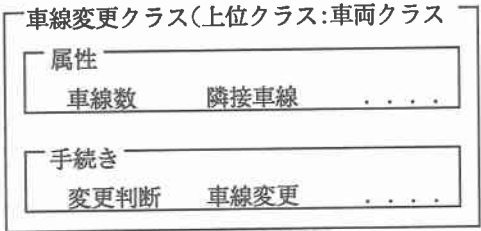 車線変更クラス(上位クラス:車両クラス
属性
車線数 隣接車線 ....
手続き
変更判断 車線変更 ....